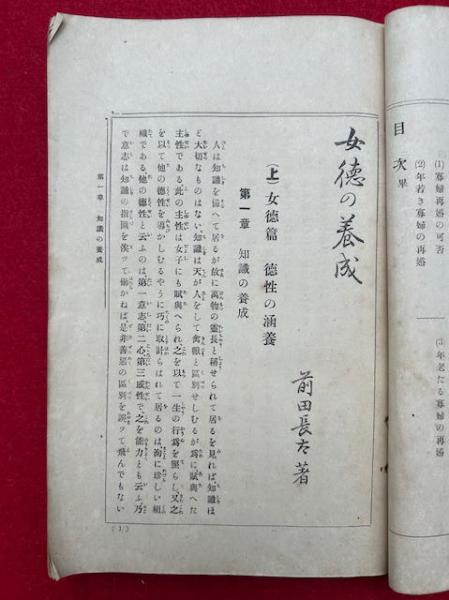 (1)寡婦再婚の可否
(2)年若き寡婦の再婚
(3)年老たる寡婦の再婚
目次畢
女徳の養成
前田長太著
(上)女徳篇 徳性の涵養
第一章 知識の養成
人は知識を備へて居るが故に萬物の靈長と稱せられて居るを見れば、知識ほ
ど大切なものはない、知識は天が人をして禽獸と區別せしむるが爲に賦與へた
主性である此の主性は女子にも賦與へられ之を以て一生の行爲を照らし、又之
を以て他の德性を導かしむるやうに巧に取計らはれて居るのは洵に珍しい組
織である、他の德性と云ふのは、第一意志、第二心、第三感性で、之を能力とも云ふ、乃
で意志は知識の指圖を俟ッて働かねば、是非善惡の區別を誤ッて飛んでもない
第一章 知識の養成
(1)